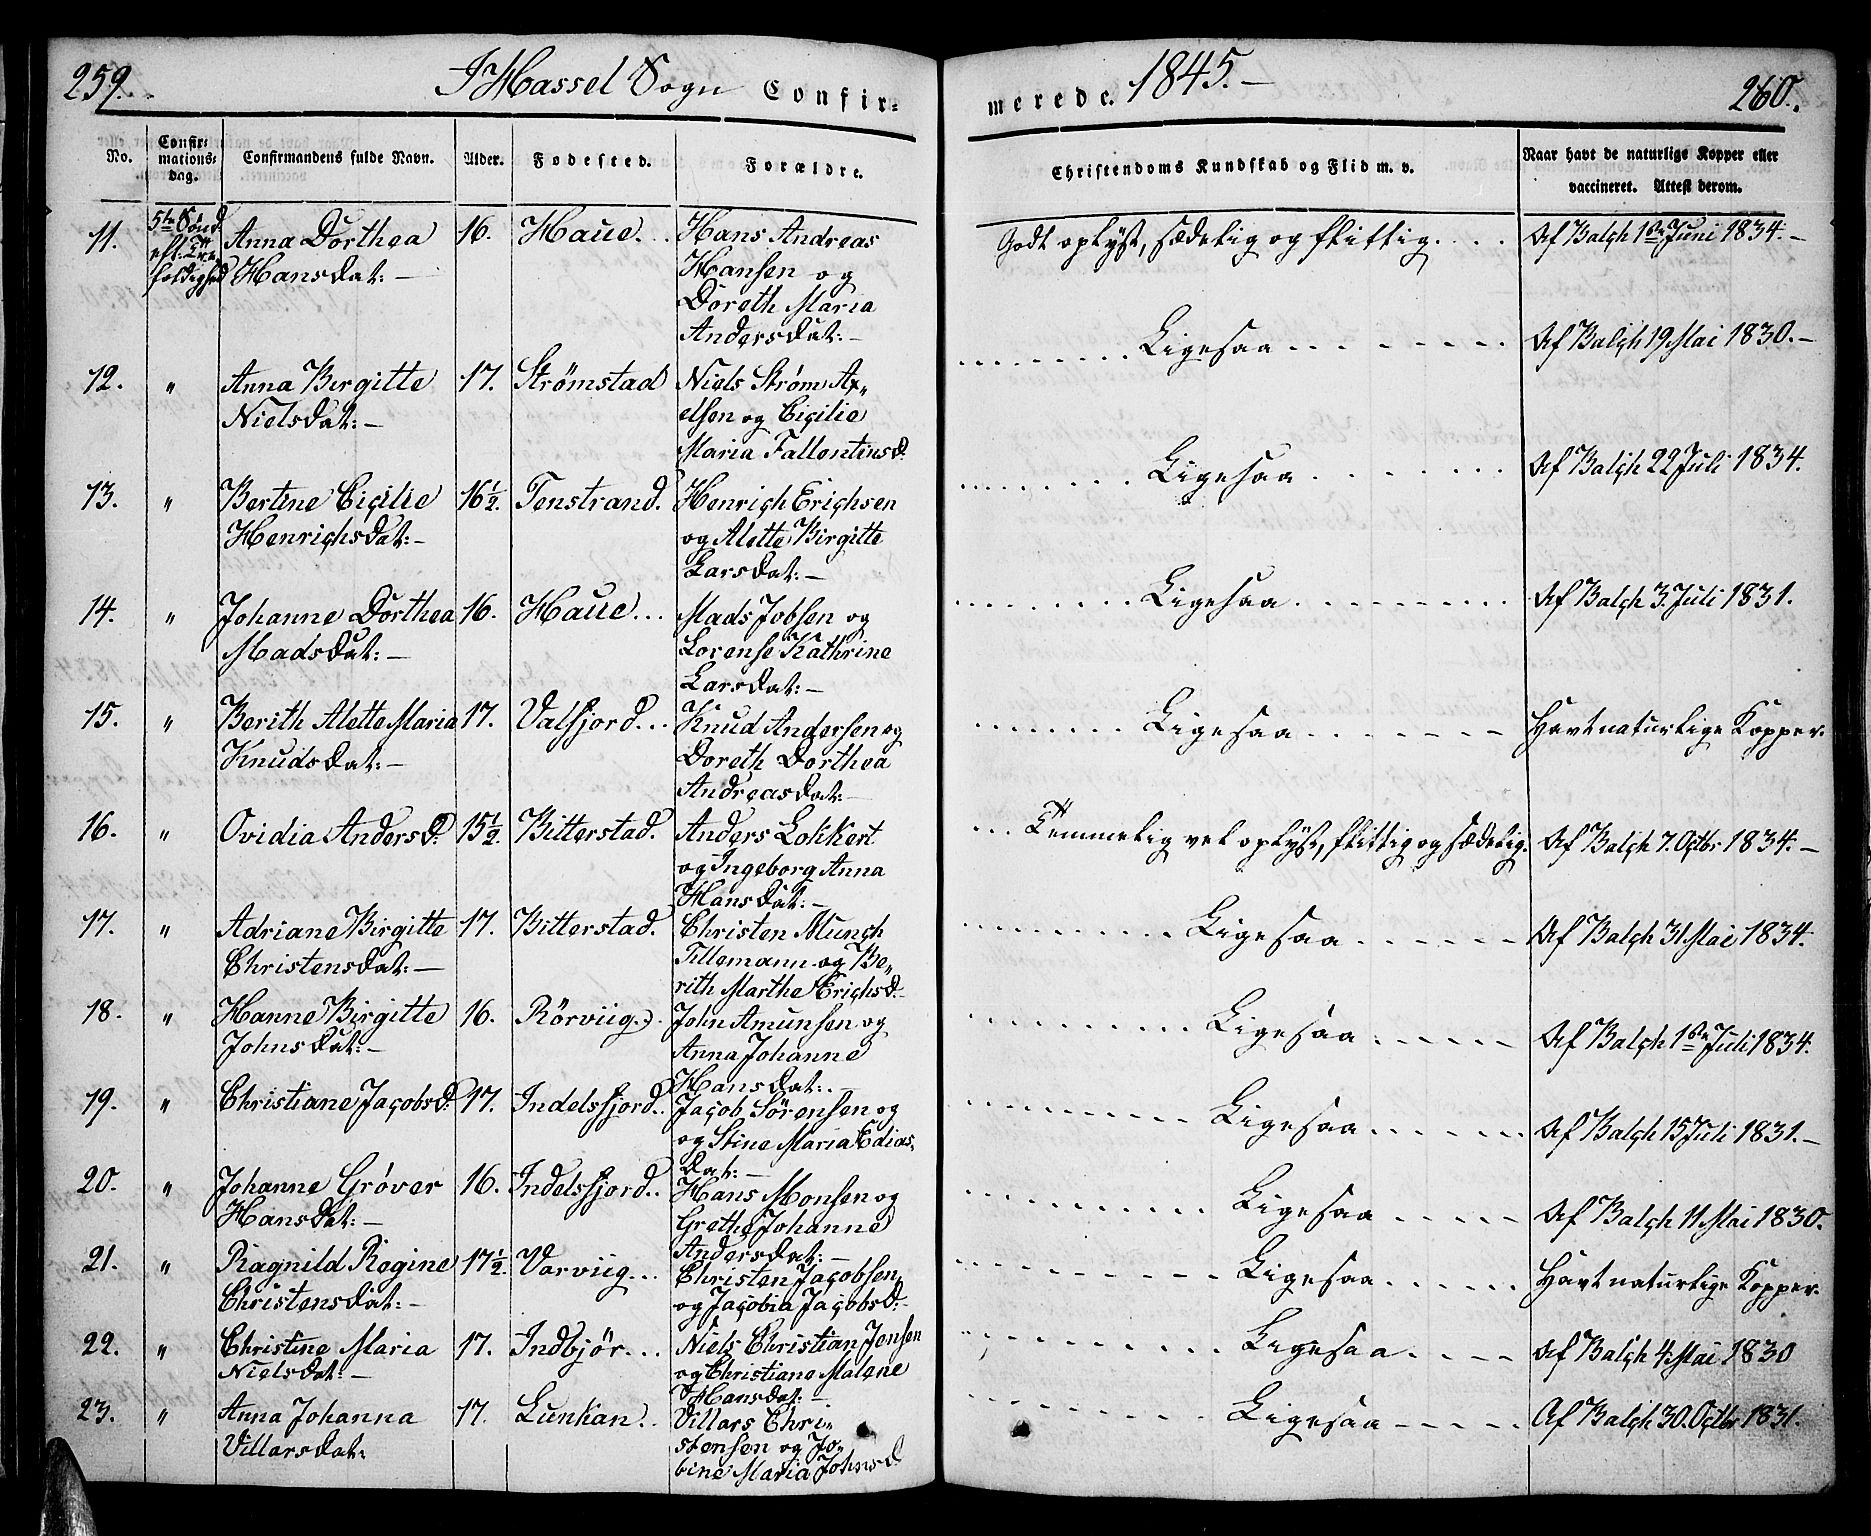 259. I Hassel Sogn Confir-
merede. 1845.- 260.
No. Confirmations-dag. Confirmandens fulde Navn. Alder. Fodested. Forældre. Christendoms Kundskab og Flid m. v. Naar havt de naturlige Kopper eller vaccineret. Attest derom.
11. 5te Sönd. Anna Dorthea 16. Haue... Hans Andreas Godt oplyst, sædelig og flittig.... Af Balch 1ste Juni 1834.-
eft: Tre- Hansdat:- Hansen og
foldighed Doreth Maria
Andersdat:-
12. " Anna Bergitte 17. Strømstad Niels Strøm Ax„ Ligesaa Af Balch 19 Mai 1830.-
Nielsdat:- elsen og Cicilie
Maria Fallentinsd:
13. " Bertine Cicilie 16½. Tenstrand. Henrich Erichsen Ligesaa Af Balch 22 Juli 1834.
Henrichsdat:- og Alette Birgitte
Larsdat:-
14. " Johanne Dorthea 16. Haue... Mads Jobsen og Ligesaa Af Balch 3. Juli 1831.
Madsdat:- Lorense Kathrine
Larsdat:-
15. " Berith Alette Maria 17. Valfjord... Knud Andersen og Ligesaa Havt naturlige Kopper.
Knudsdat:- Doreth Dorthea
Andreasdat:-
16. " Ovidia Andersd: 15½. Bitterstad. Anders Lokkert ... Temmelig vel oplyst, flittig og sædelig. Af Balch 7. Octbr 1834.-
og Ingeborg Anna
Hansdat:-
17. " Adriane Birgitte 17. Bitterstad. Christen Munch Ligesaa Af Balch 31 Mai 1834.
Christensdat:- Tillemann og Be„
rith Marthe Erichsd:-
18. " Hanne Birgitte 16. Rörviig.. John Amunsen og Ligesaa Af Balch 1ste Juli 1834.
Johnsdat:- Anna Johanne
Hansdat:.-
19. " Christiane Jacobsd: 17. Indelsfjord.. Jacob Sörensen og Ligesaa Af Balch 15 Juli 1831.-
og Stine Maria Edias„
dat:-
20. " Johanne Gröver 16. Indelsfjord.. Hans Monsen og Ligesaa Af Balch 11 Mai 1830.
Hansdat:- Grethe Johanne
Andersdat:-
21. " Ragnild Regine 17½. Vorviig... Christen Jacobsen Ligesaa Havt naturlige Kopper.
Christensdat:- og Jacobia Jacobsd:-
22. " Christine Maria 17. Indbjör... Niels Christian Jensen Ligesaa Af Balch 4 Mai 1830
Nielsdat:- og Christiane Malene
Hansdat:-
23. " Anna Johanna 17. Lunkan.. Villars Chri„ Ligesaa Af Balch 30. Octbr 1831.
Villarsdat: stensen og Jo„
bine Maria Johnsd